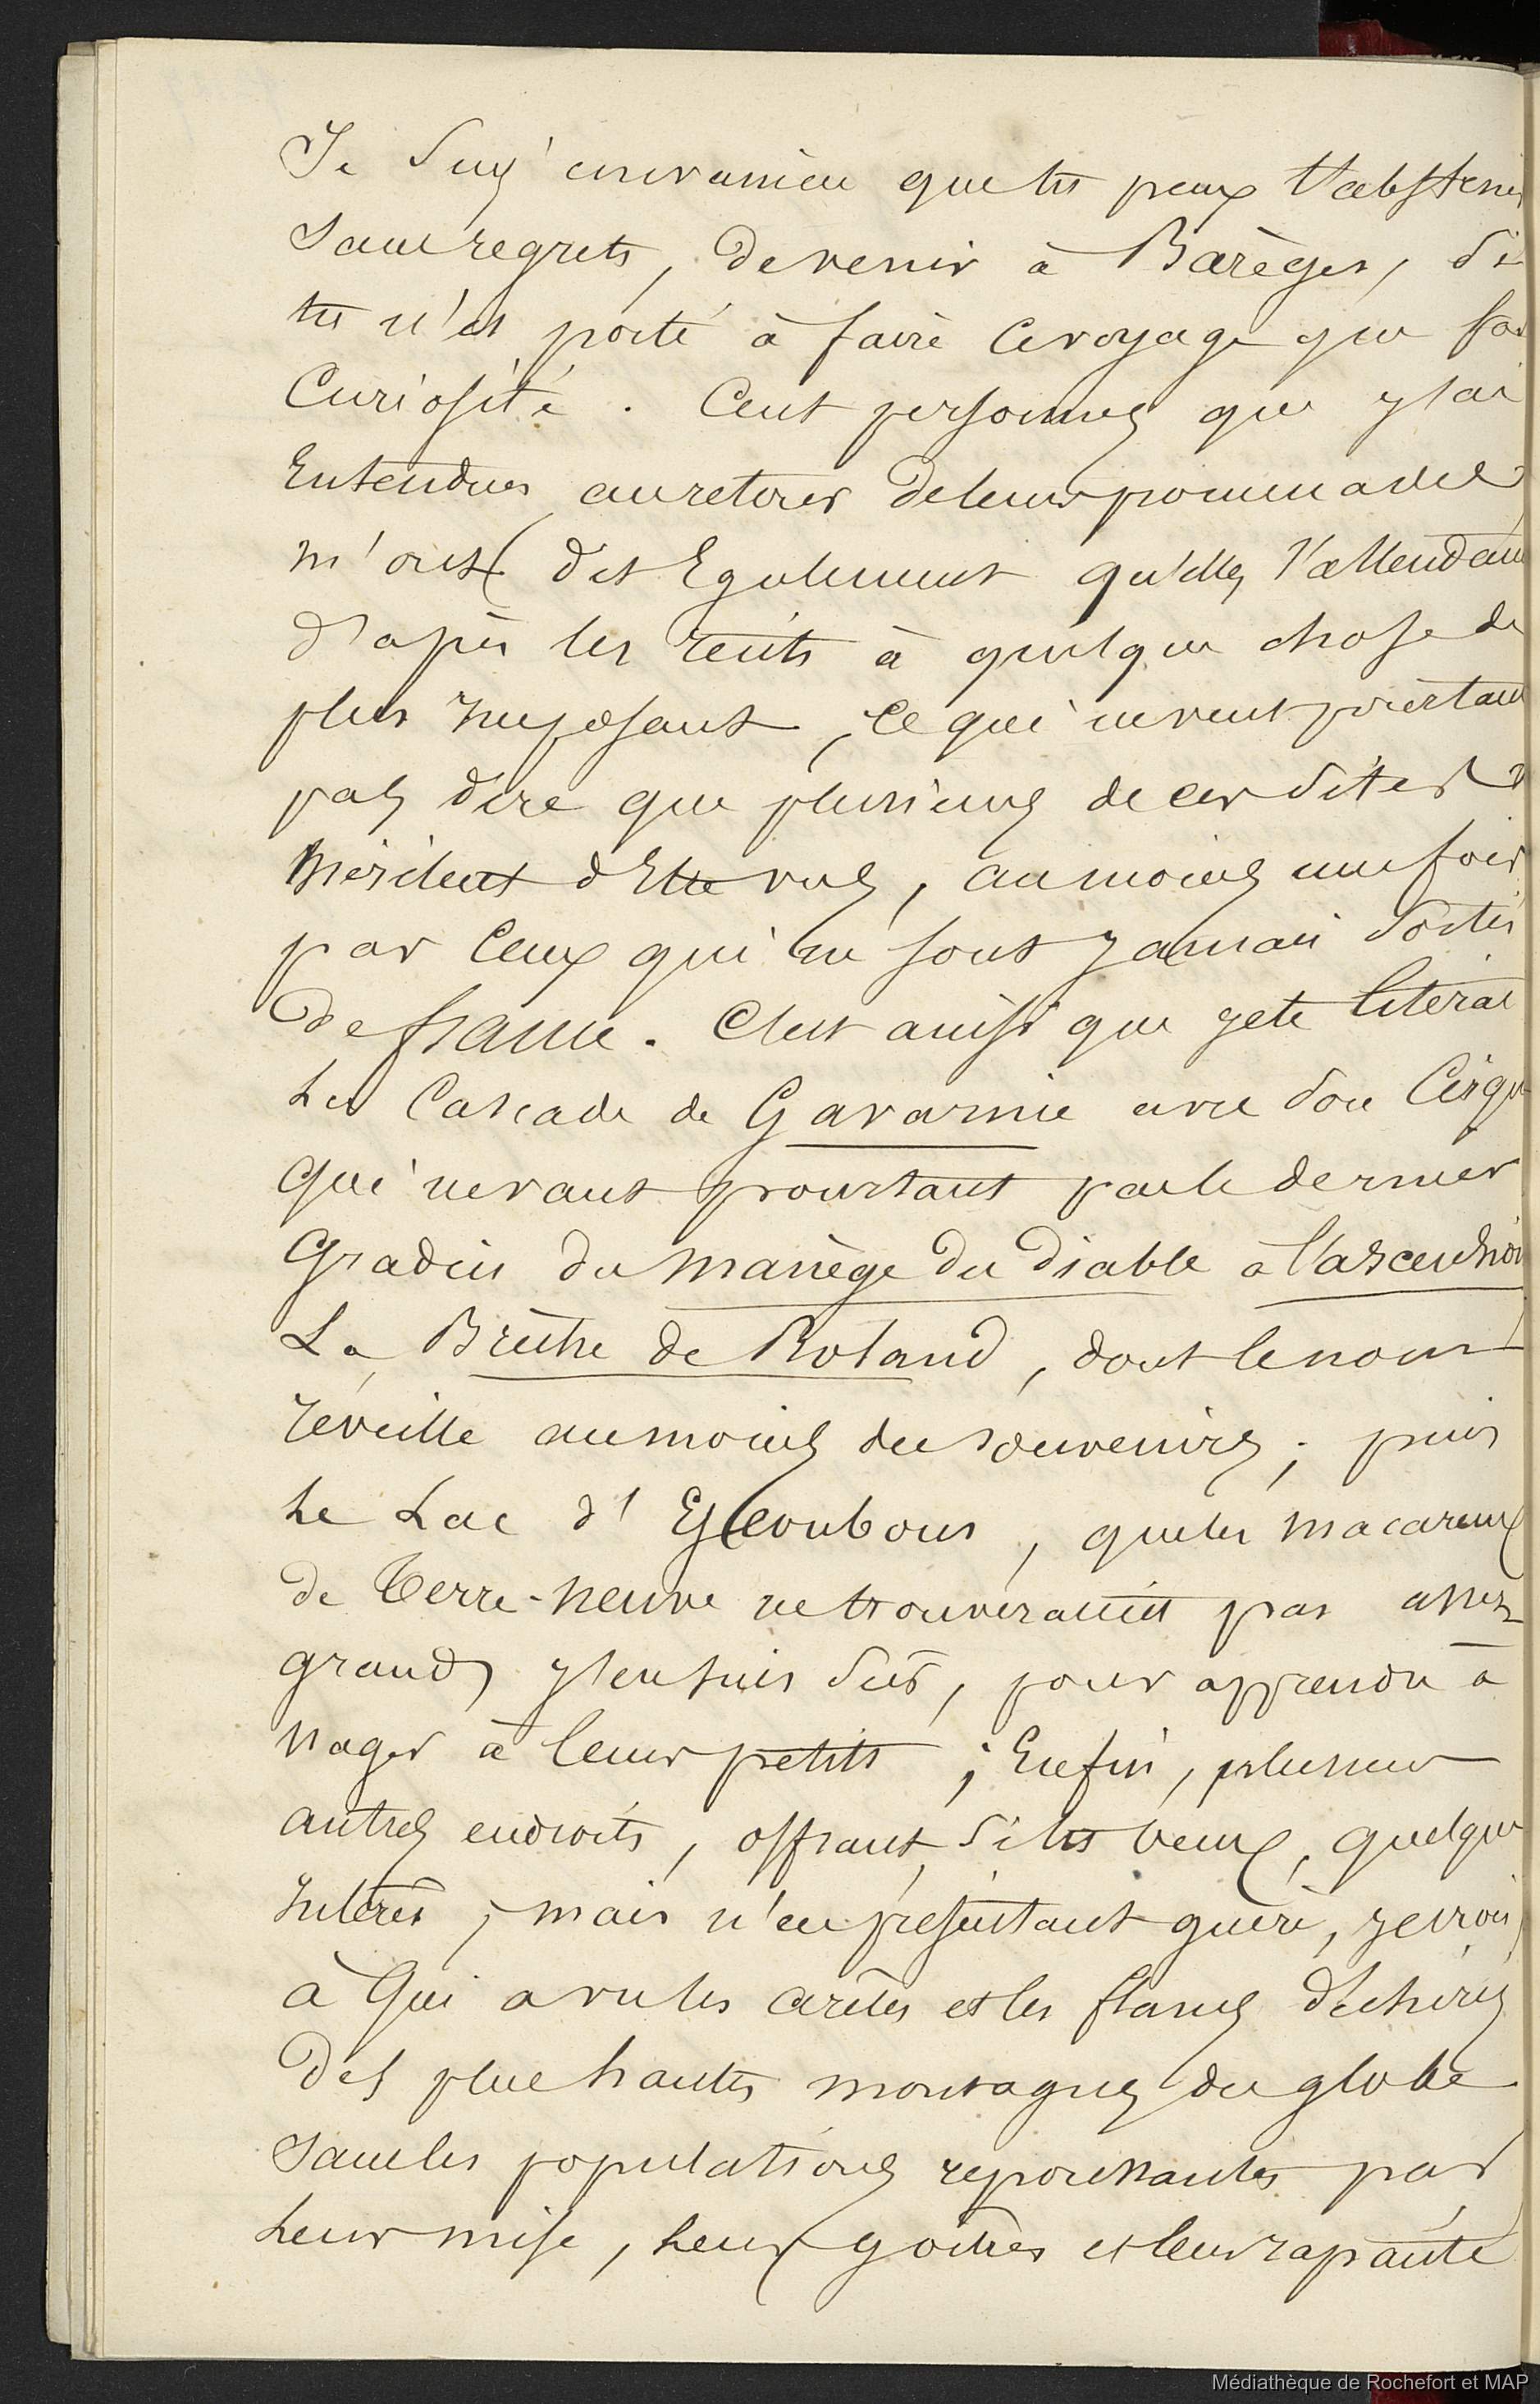 Je suis convaincu que tu peux t'abstenir
sans regrets, de venir à Barèges, si
tu n'es porté à faire ce voyage que par
Curiosité. Cent personnes que j'ai
Entendues au retour de leurs promenades
m'ont dit Egalement qu'elles s'attendaient
d'après les récits à quelque chose de
plus Imposant, ce qui ne veut pourtant
pas dire que plusieurs de ces sites
Méritent d'Etre vus, au moins une fois,
par Ceux qui ne sont jamais sortis
De france. C'est ainsi que je te citerai
La Cascade de Gavarnie avec son Cirque
qui ne vaut pourtant pas le dernier
Gradin du Manège du Diable à l'ascension
La Brèche de Roland, dont le nom
réveille au moins des souvenirs; puis
Le Lac d'Escoubous, que les Macareux
de Terre-Neuve ne trouveraient pas assez
grand, j'en suis sûr, pour apprendre à
Nager à leurs petits; Enfin, plusieurs
autres endroits, offrant, si tu veux, quelque
Intérêt, mais n'en présentant guère, je crois,
à Qui a vu les arêtes et les flancs déchirés
Des plus hautes montagnes du globe
sans les populations repoussantes par
Leur mise, Leurs goîtres et leur rapacité
Médiathèque de Rochefort et MAP